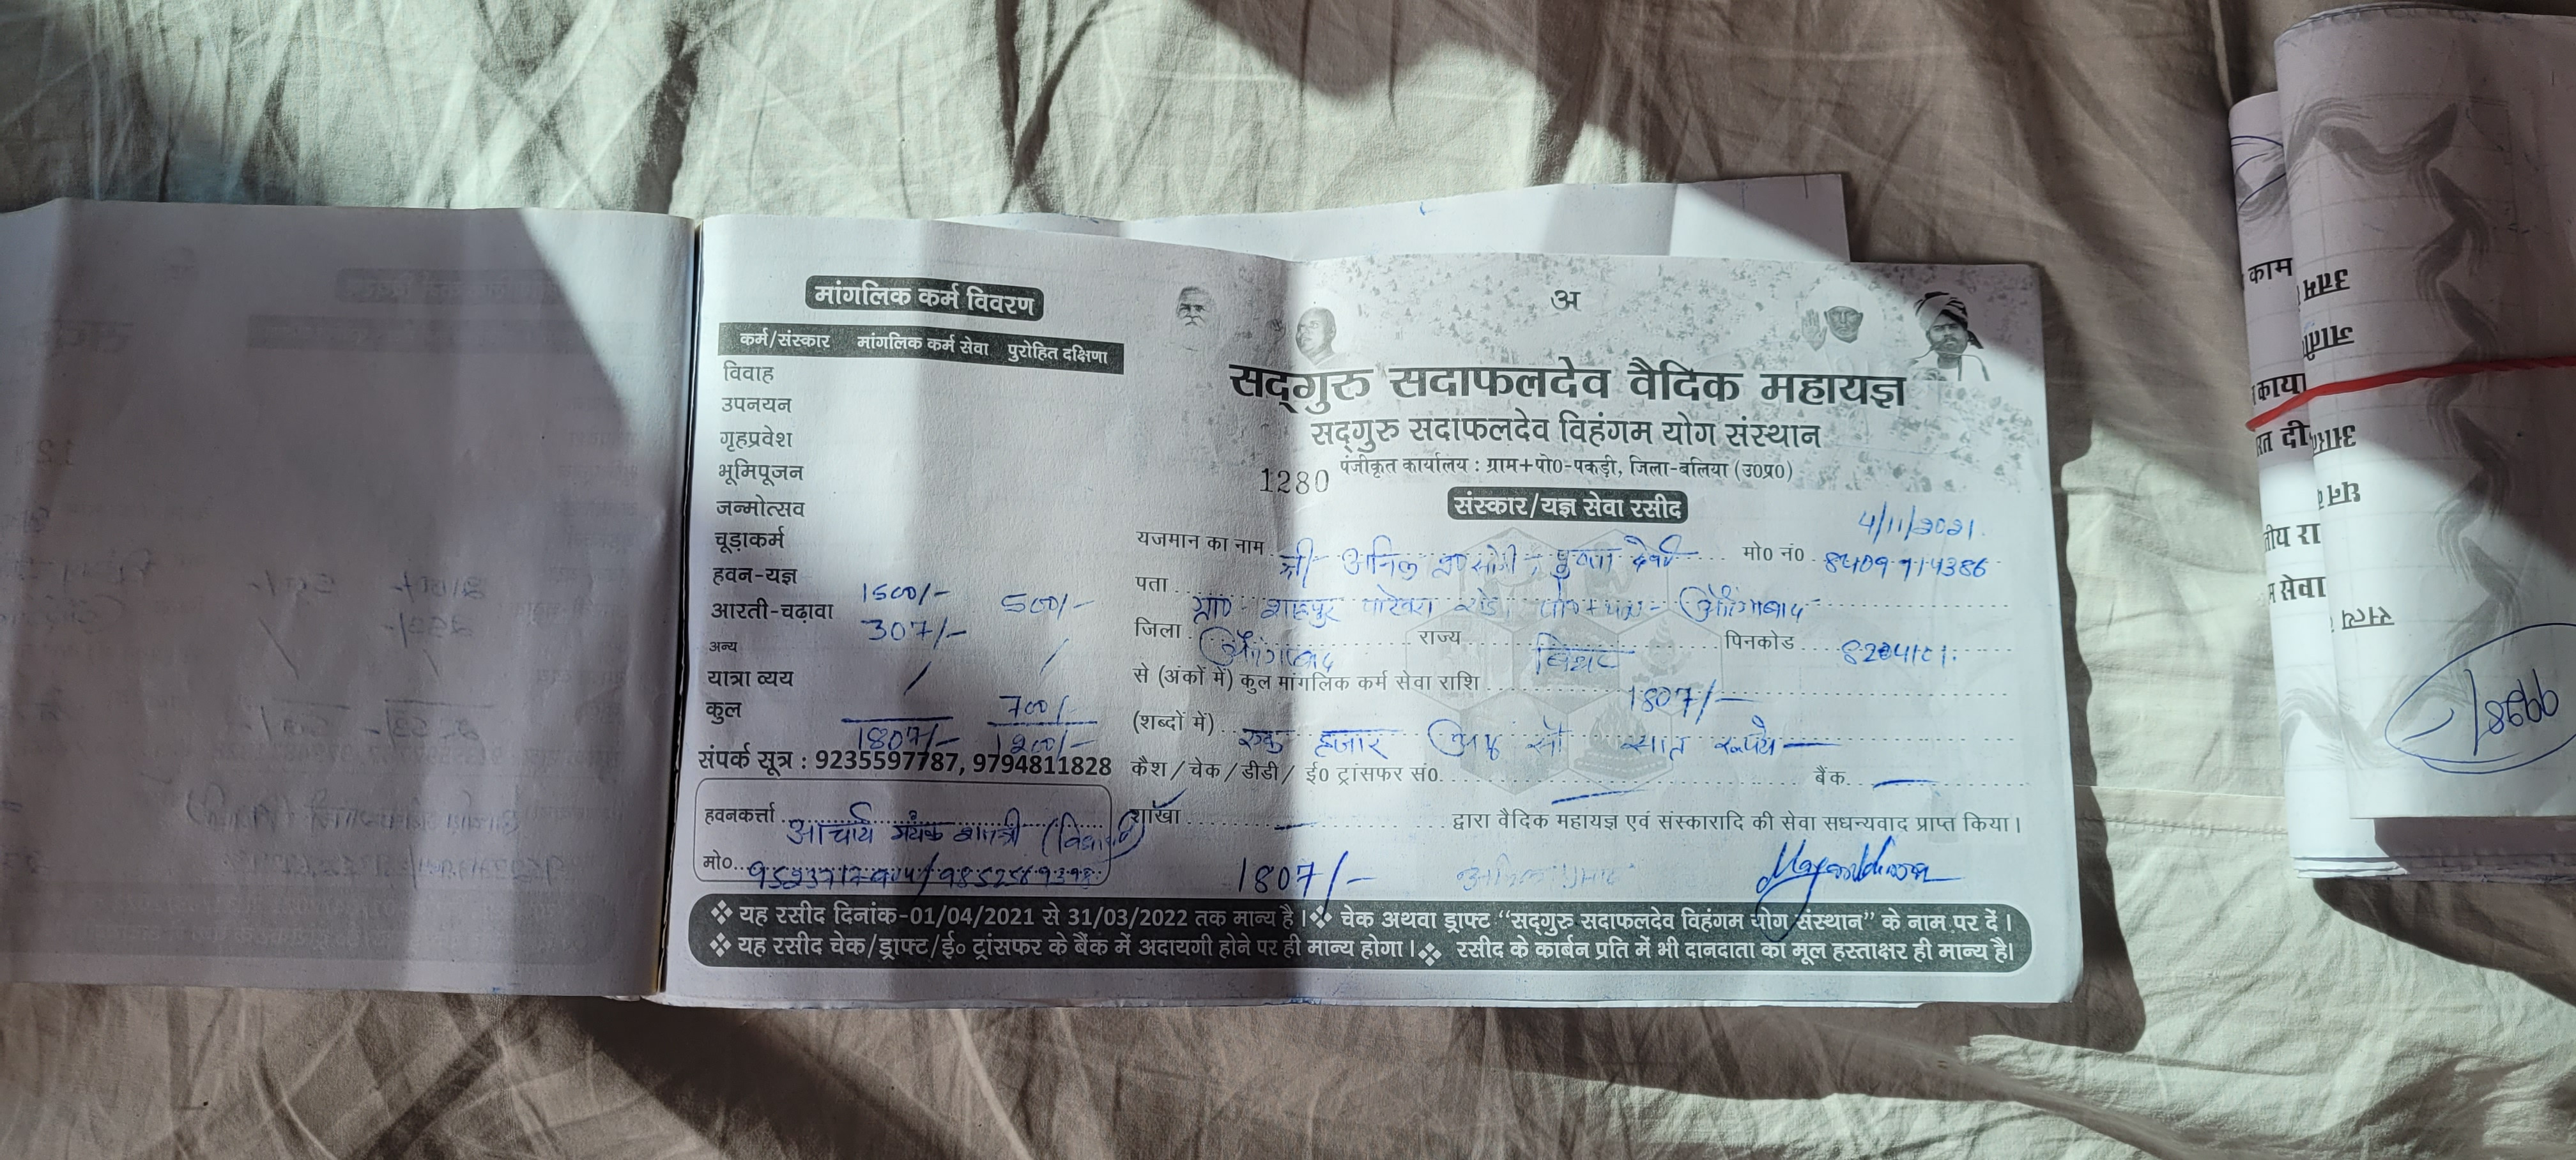 मांगलिक कर्म विवरण
कर्म/संस्कार मांगलिक कर्म सेवा पुरोहित दक्षिणा
विवाह
उपनयन
गृहप्रवेश
भूमिपूजन
जन्मोत्सव
चूड़ाकर्म
हवन-यज्ञ 1500/- 500/-
आरती-चढ़ावा 307/-
अन्य / /
यात्रा व्यय 700/-
कुल 1807/- 1200/-
संपर्क सूत्र : 9235597787, 9794811828
हवनकर्त्ता आचार्य मयंक शास्त्री
मो०
अ
सद्गुरु सदाफलदेव वैदिक महायज्ञ
सद्गुरु सदाफलदेव विहंगम योग संस्थान
पंजीकृत कार्यालय : ग्राम+पो०-पकड़ी, जिला-बलिया (उ०प्र०)
1280
संस्कार/यज्ञ सेवा रसीद
4/11/2021
यजमान का नाम श्री अनिल देवी मो० नं०
पता ग्रा०- शाहपुर औरंगाबाद
जिला औरंगाबाद राज्य बिहार पिनकोड
से (अंकों में) कुल मांगलिक कर्म सेवा राशि 1807/-
(शब्दों में) एक हजार आठ सौ सात रूपये
कैश/चेक/डीडी/ ई० ट्रांसफर सं० बैंक
शाखा द्वारा वैदिक महायज्ञ एवं संस्कारादि की सेवा सधन्यवाद प्राप्त किया।
1807/-
❖ यह रसीद दिनांक-01/04/2021 से 31/03/2022 तक मान्य है। ❖ चेक अथवा ड्राफ्ट “सद्गुरु सदाफलदेव विहंगम योग संस्थान” के नाम पर दें।
❖ यह रसीद चेक/ड्राफ्ट/ई० ट्रांसफर के बैंक में अदायगी होने पर ही मान्य होगा। ❖ रसीद के कार्बन प्रति में भी दानदाता का मूल हस्ताक्षर ही मान्य है।
काम
काया
सेवा